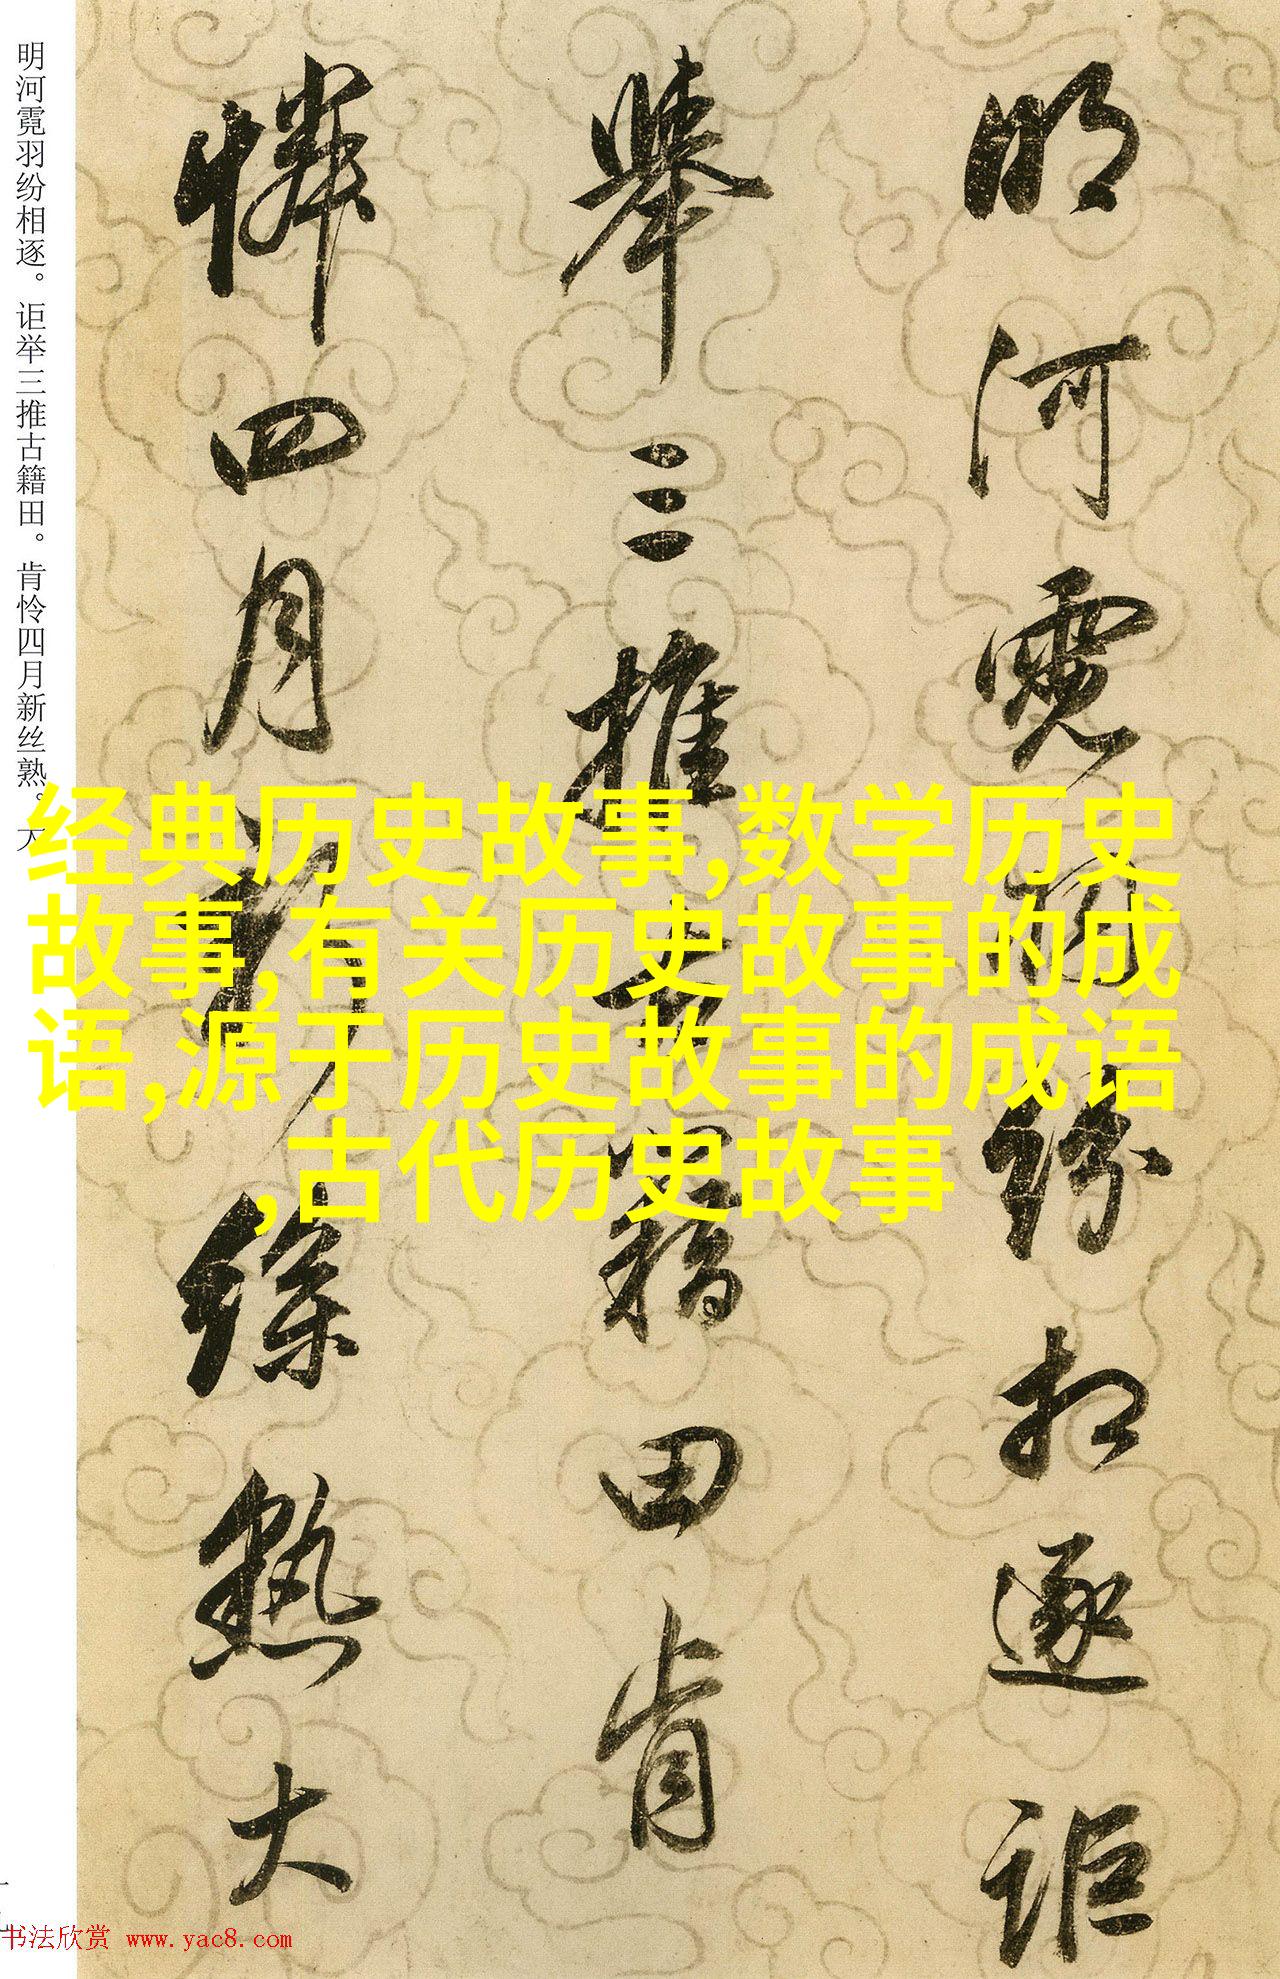 明河霓羽纷相逐。讵举三推古籍田。肯怜四月新丝熟。大
明河霓羽纷相逐讵
举三推古籍田肯
怜四月新丝熟大
经典历史故事,数学历史
故事,有关历史故事的成
语,源于历史故事的成语
,古代历史故事
书法欣赏 www.yac8.com